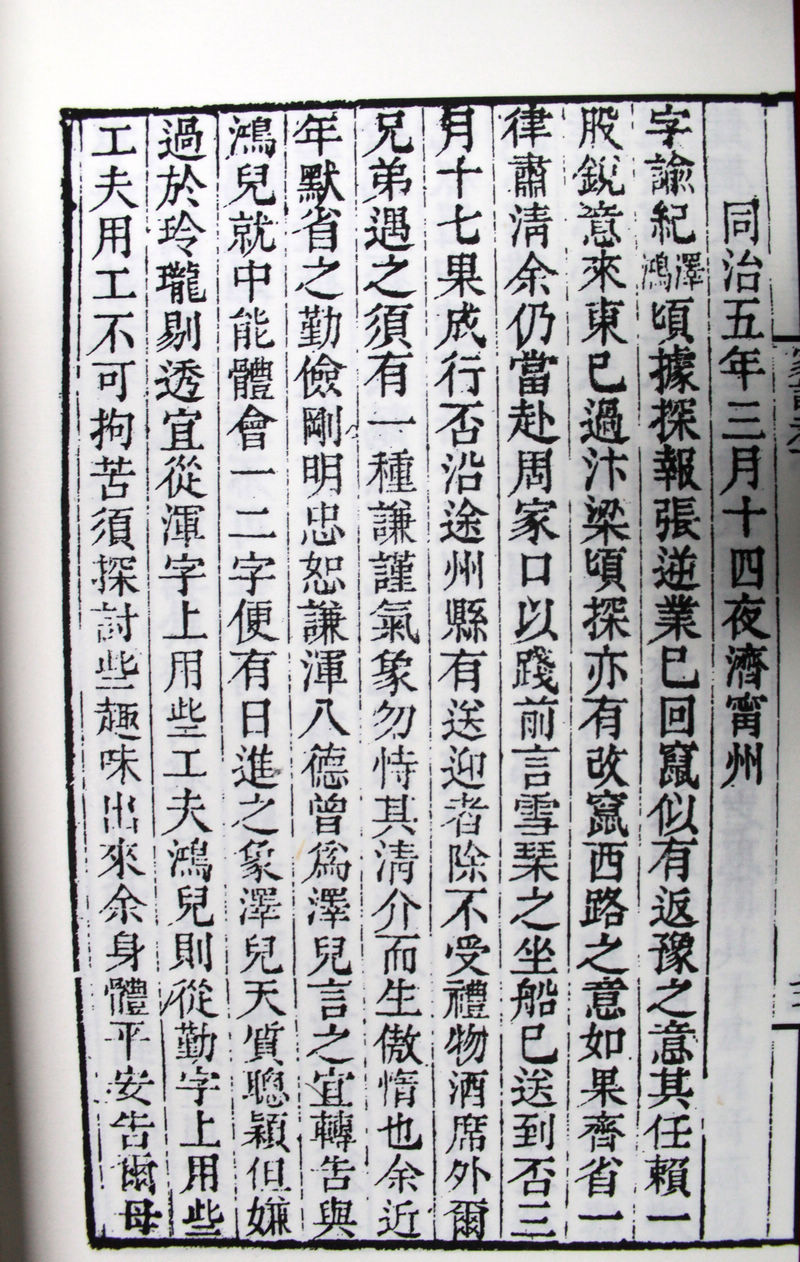 同治五年三月十四夜濟甯州
字諭紀澤鴻頃據探報張逆業已回竄似有返豫之意其任賴一
股銳意來東已過汴梁頃探亦有改竄西路之意如果齊省一
律肅清余仍當赴周家口以踐前言雪琴之坐船已送到否三
月十七果成行否沿途州縣有送迎者除不受禮物酒席外爾
兄弟遇之須有一種謙謹氣象勿恃其清介而生傲惰也余近
年默省之勤儉剛明忠恕謙渾八德曾爲澤兒言之宜轉告與
鴻兒就中能體會一二字便有日進之象澤兒天質聰穎但嫌
過於玲瓏剔透宜從渾字上用些工夫鴻兒則從勤字上用些
工夫用工不可拘苦須探討些趣味出來余身體平安告爾母